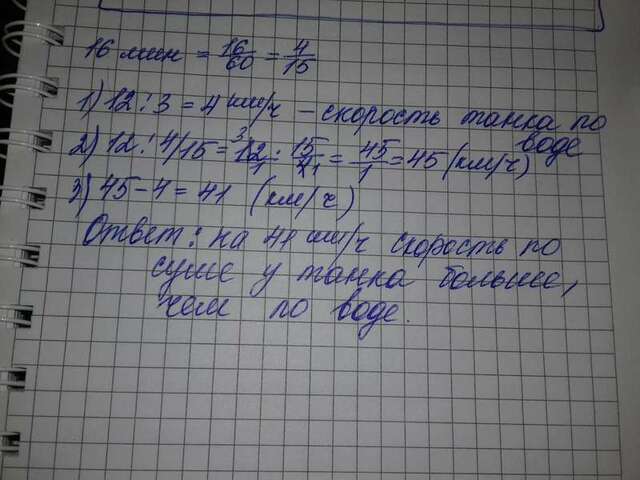 16 мин = 16/60 = 4/15
1) 12 : 3 = 4 км/ч - скорость танка по
воде
2) 12 : 4/15 = 12/1 : 15/4 = 45/1 = 45 (км/ч)
3) 45 - 4 = 41 (км/ч)
Ответ: на 41 км/ч скорость по
суше у танка больше,
чем по воде.